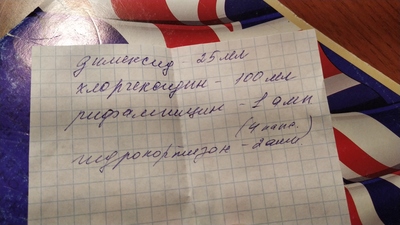 димексид - 25мл
хлоргексидин - 100мл
рифампицин - 1 амп
(4 капс.)
гидрокортизон - 2 амп